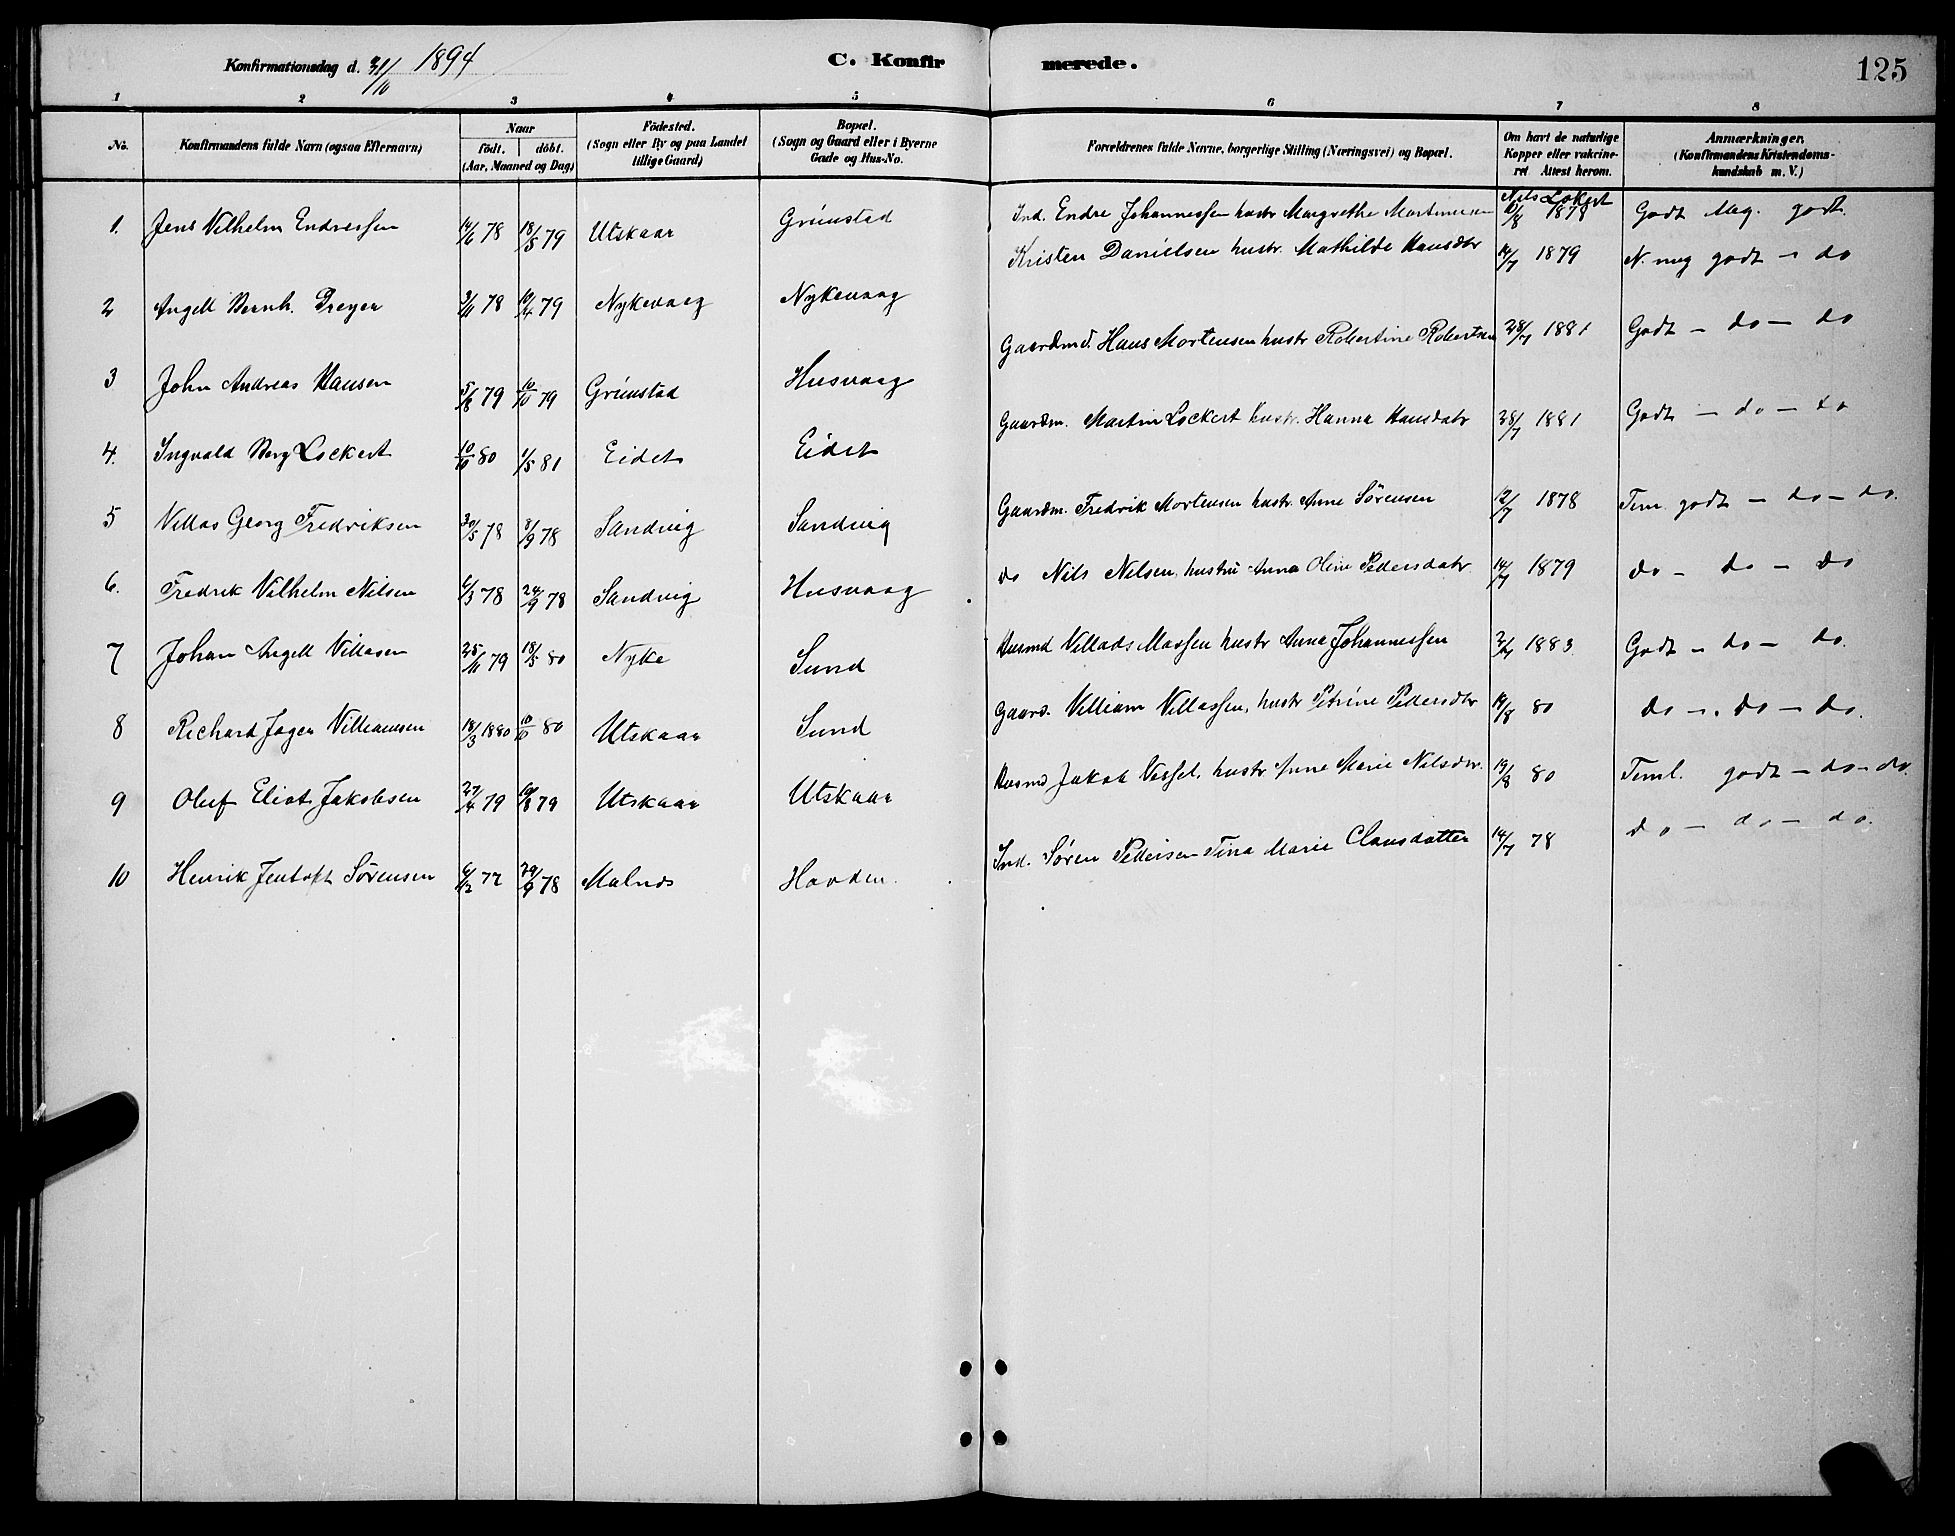 Konfirmationsdag d. 31/10 1894
C. Konfirmerede.
125
1 2 3 4 5 6 7 8
No.
Konfirmandens fulde Navn (ogsaa Efternavn)
Naar
födt. döbt.
(Aar, Maaned og Dag)
Födested.
(Sogn eller By og paa Landet
tillige Gaard)
Bopæl.
(Sogn og Gaard eller i Byerne
Gade og Hus-No.
Forældrenes fulde Navne, borgerlige Stilling (Næringsvei) og Bopæl.
Om havt de naturlige
Kopper eller vakcine-
ret Attest herom.
Anmærkninger.
(Konfirmandens Kristendoms-
kundskab m. V.)
Nils Lokert
1. Jens Vilhelm Endressen 14/6 78 18/5 79 Utskaar Grunstad Ind. Endre Johannessen hustr Margrethe Mortensen 10/8 1878 Godt Meg. godt.
2 Angell Bernh. Dreyer 3/11 78 10/4 79 Nykevaag Nykevaag Kristen Danielsen hustr. Mathilde Hansdtr 14/7 1879 N. meg godt - do
3 John Andreas Hansen 5/8 79 10/10 79 Grunstad Husvaag Gaardmd. Hans Mortensen hustr Robertine Robertsen 28/7 1881 Godt - do - do
4. Ingvald Berg Lockert 10/10 80 1/5 81 Eidet Eidet Gaardm. Martin Lockert hustr. Hanna Hansdatr 28/7 1881 Godt - do - do
5 Villas Georg Fredriksen 30/5 78 8/9 78 Sandvig Sandvig Gaardm. Fredrik Mortensen hustr. Anne Sörensen 12/7 1878 Tem. godt - do - do.
6. Fredrik Vilhelm Nilsen 6/3 78 29/9 78 Sandvig Husvaag do Nils Nilsen, hustru Anna Oline Pedersdatr 14/7 1879 do - do - do
7 Johan Angell Villasen 25/11 79 18/5 80 Nyke Sund Husmd Villads Massen hustr Anna Johannessen 2/7 1883. Godt - do - do.
8 Richard Jager Villiamsen 18/3 1880 10/10 80 Utskaar Sund Gaard. Villiam Villassen, hustr Petrine Pedersdtr 19/8 80 do - do - do.
9 Oluf Eliot Jakobsen 27/4 79 10/8 79 Utskaar Utskaar Husmd Jakob Vessel, hustr Anne Marie Nilsdtr. 19/8 80 Teml. godt - do - do.
10 Henrik Jentoft Sörensen 6/12 77 29/9 78 Malnes Hovden. Ind. Sören Pedersen Tina Marie Clausdatter 14/7 78 do - do - do.